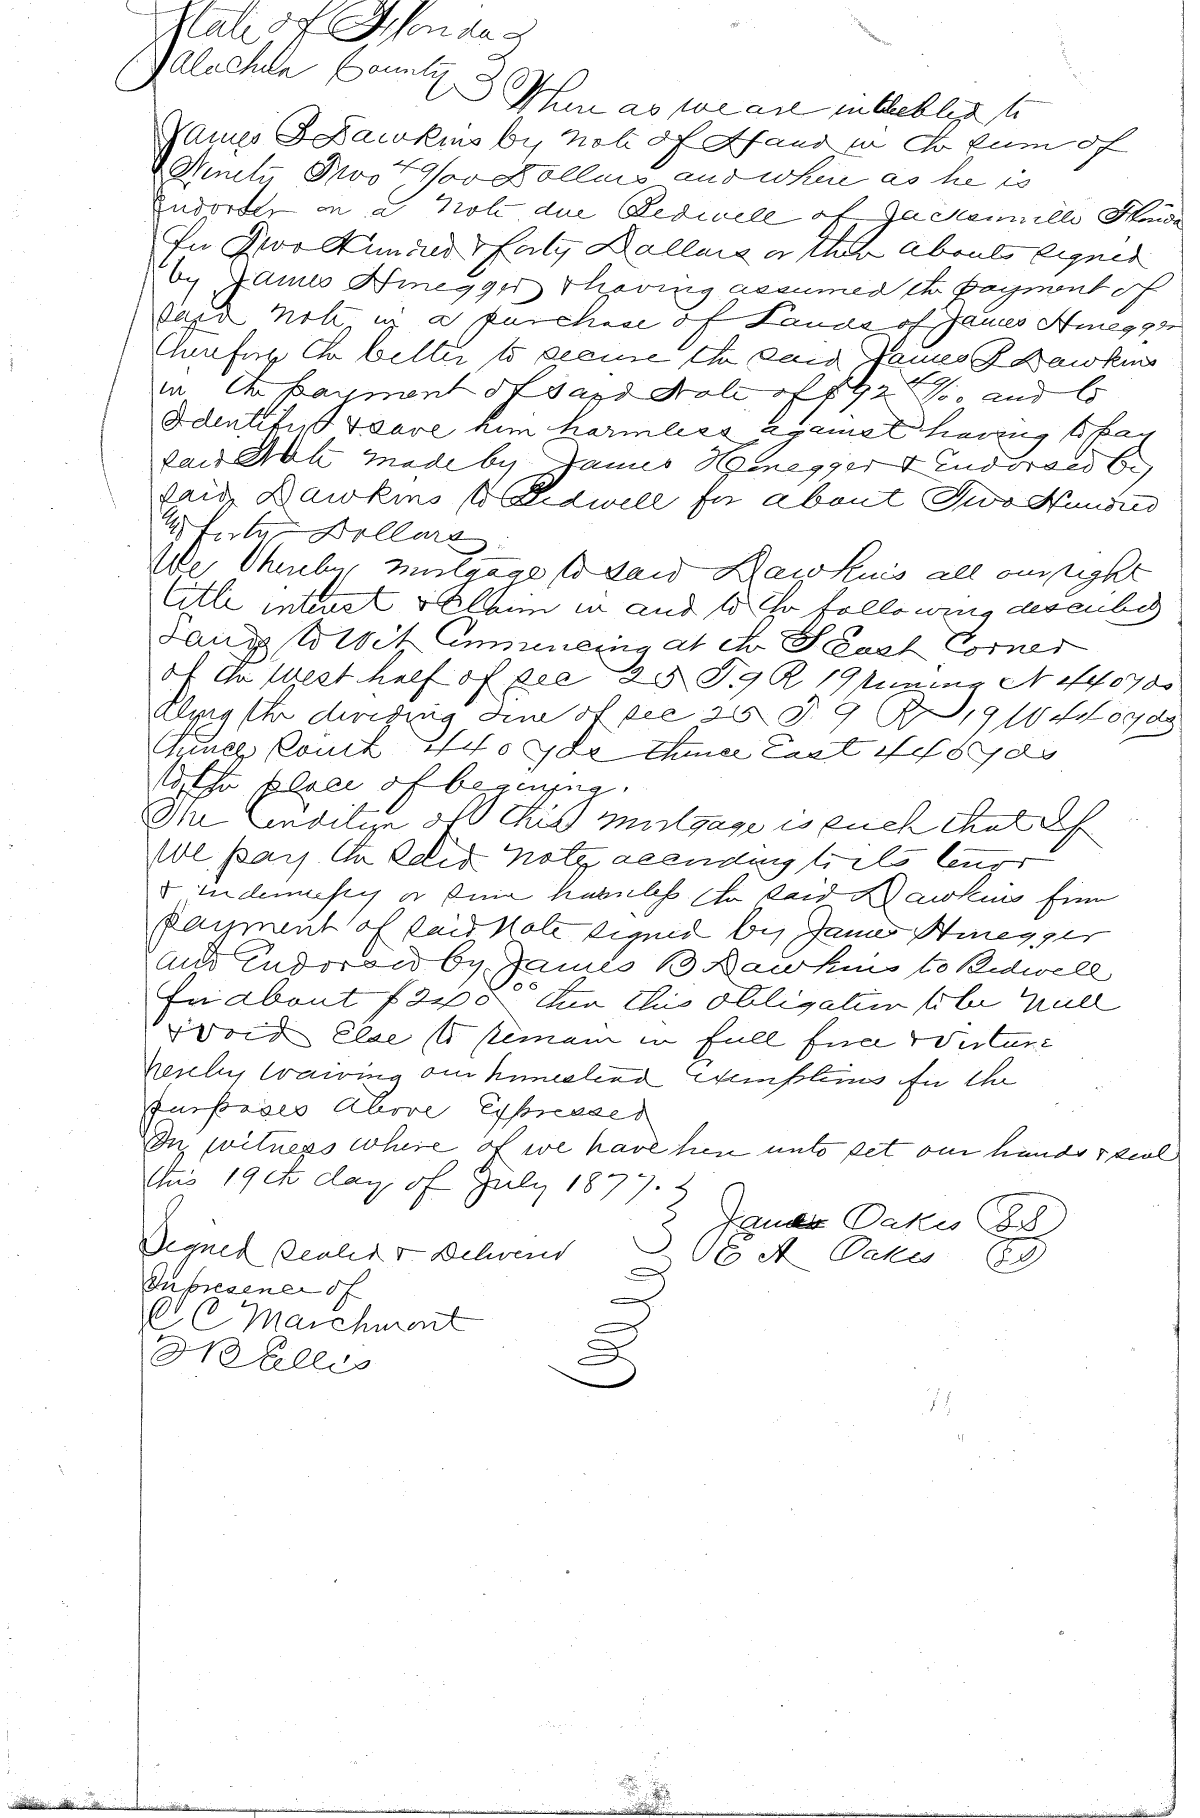 State of Florida
Alachua County
Where as we are indebted to
James B Dawkins by note of Hand in the sum of
Ninety Two 49/00 Dollars and where as he is
Endorser on a Note due Bedwell of Jacksonville Florida
For Two Hundred & forty Dollars or there abouts signed
by James Hinegger & having assumed the payment of
said note in a purchase of Lands of James Hinegger
Therefore the better to secure the said James B Dawkins
in the payment of said Note of $92 49/00 and to
Identify & save him harmless against having to pay
said Note made by James Henegger & Endorsed by
said Dawkins to Bedwell for about Two Hundred
& forty Dollars
We hereby mortgage to said Dawkins all our right
title interest & claim in and to the following described
Lands to Wit Commencing at the S East Corner
of the West half of sec 25 T.9 R 19 runing N 440 yds
Along the dividing Line of sec 25 T 9 R 19 W 440 yds
thence South 440 yds thence East 440 yds
to the place of begining.
The Condition of this mortgage is such that If
we pay the said note according to its tenor
& indemnify or save harmless the said Dawkins from
payment of said Note signed by James Hinegger
and Endorsed by James B Dawkins to Bedwell
for about $240 00 then this obligation to be Null
& Void Else to remain in full force & Virture
hereby waiving our homestead Exemptions for the
purposes above Expressed
In witness where of we have here unto set our hands & seal
this 19th day of July 1877.
James Oakes
Signed sealed & Delivered E A Oakes
In presence of
C C Marchmont
Ellis